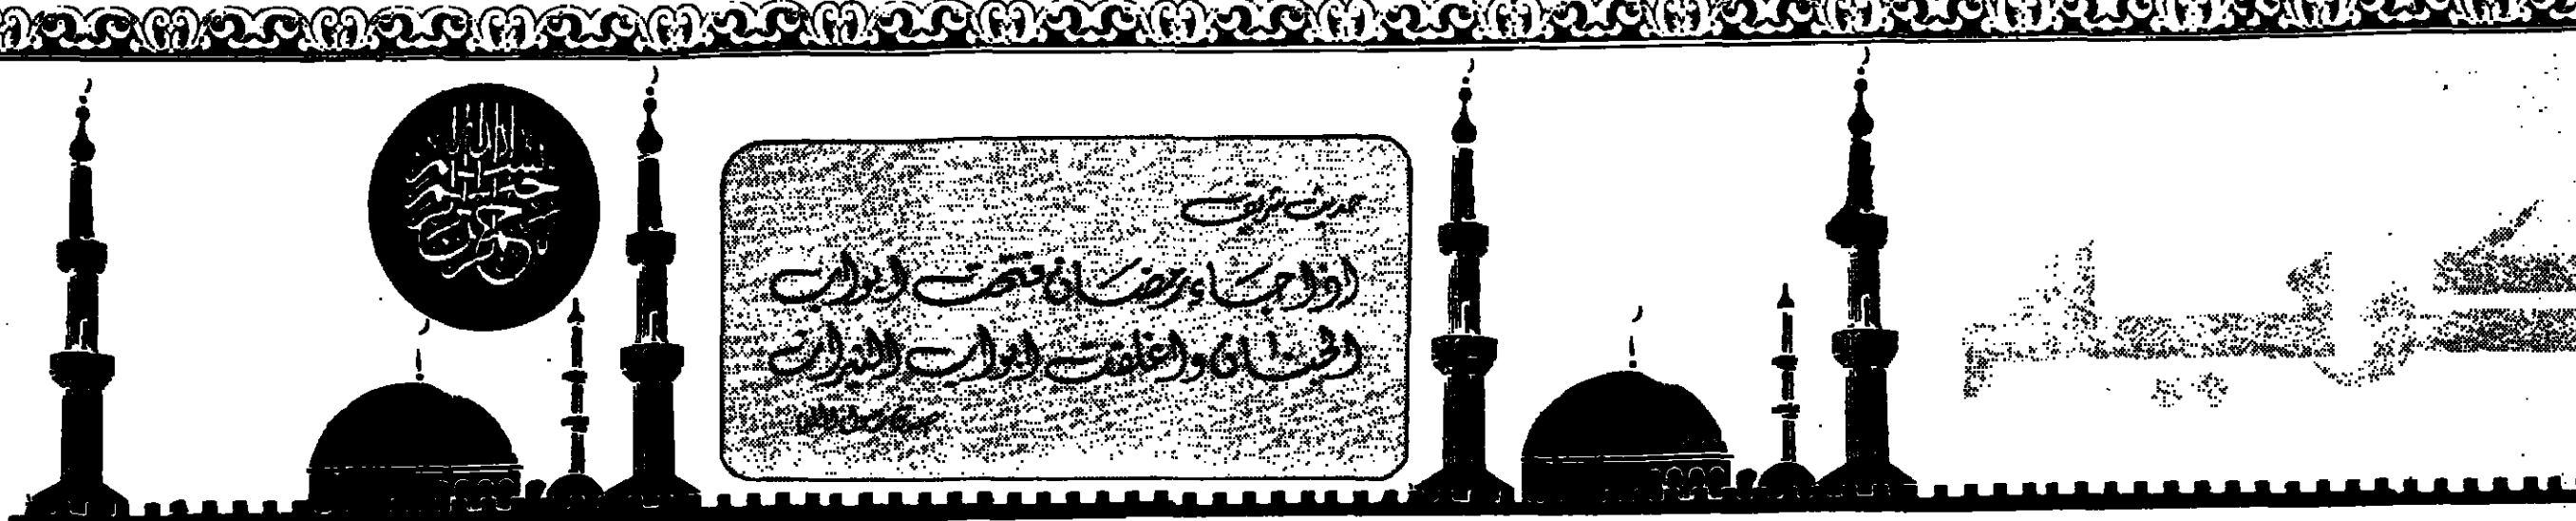 بسم الله الرحمن الرحيم
حديث شريف
اذا جاء رمضان فتحت ابواب
الجنان واغلقت ابواب النيران